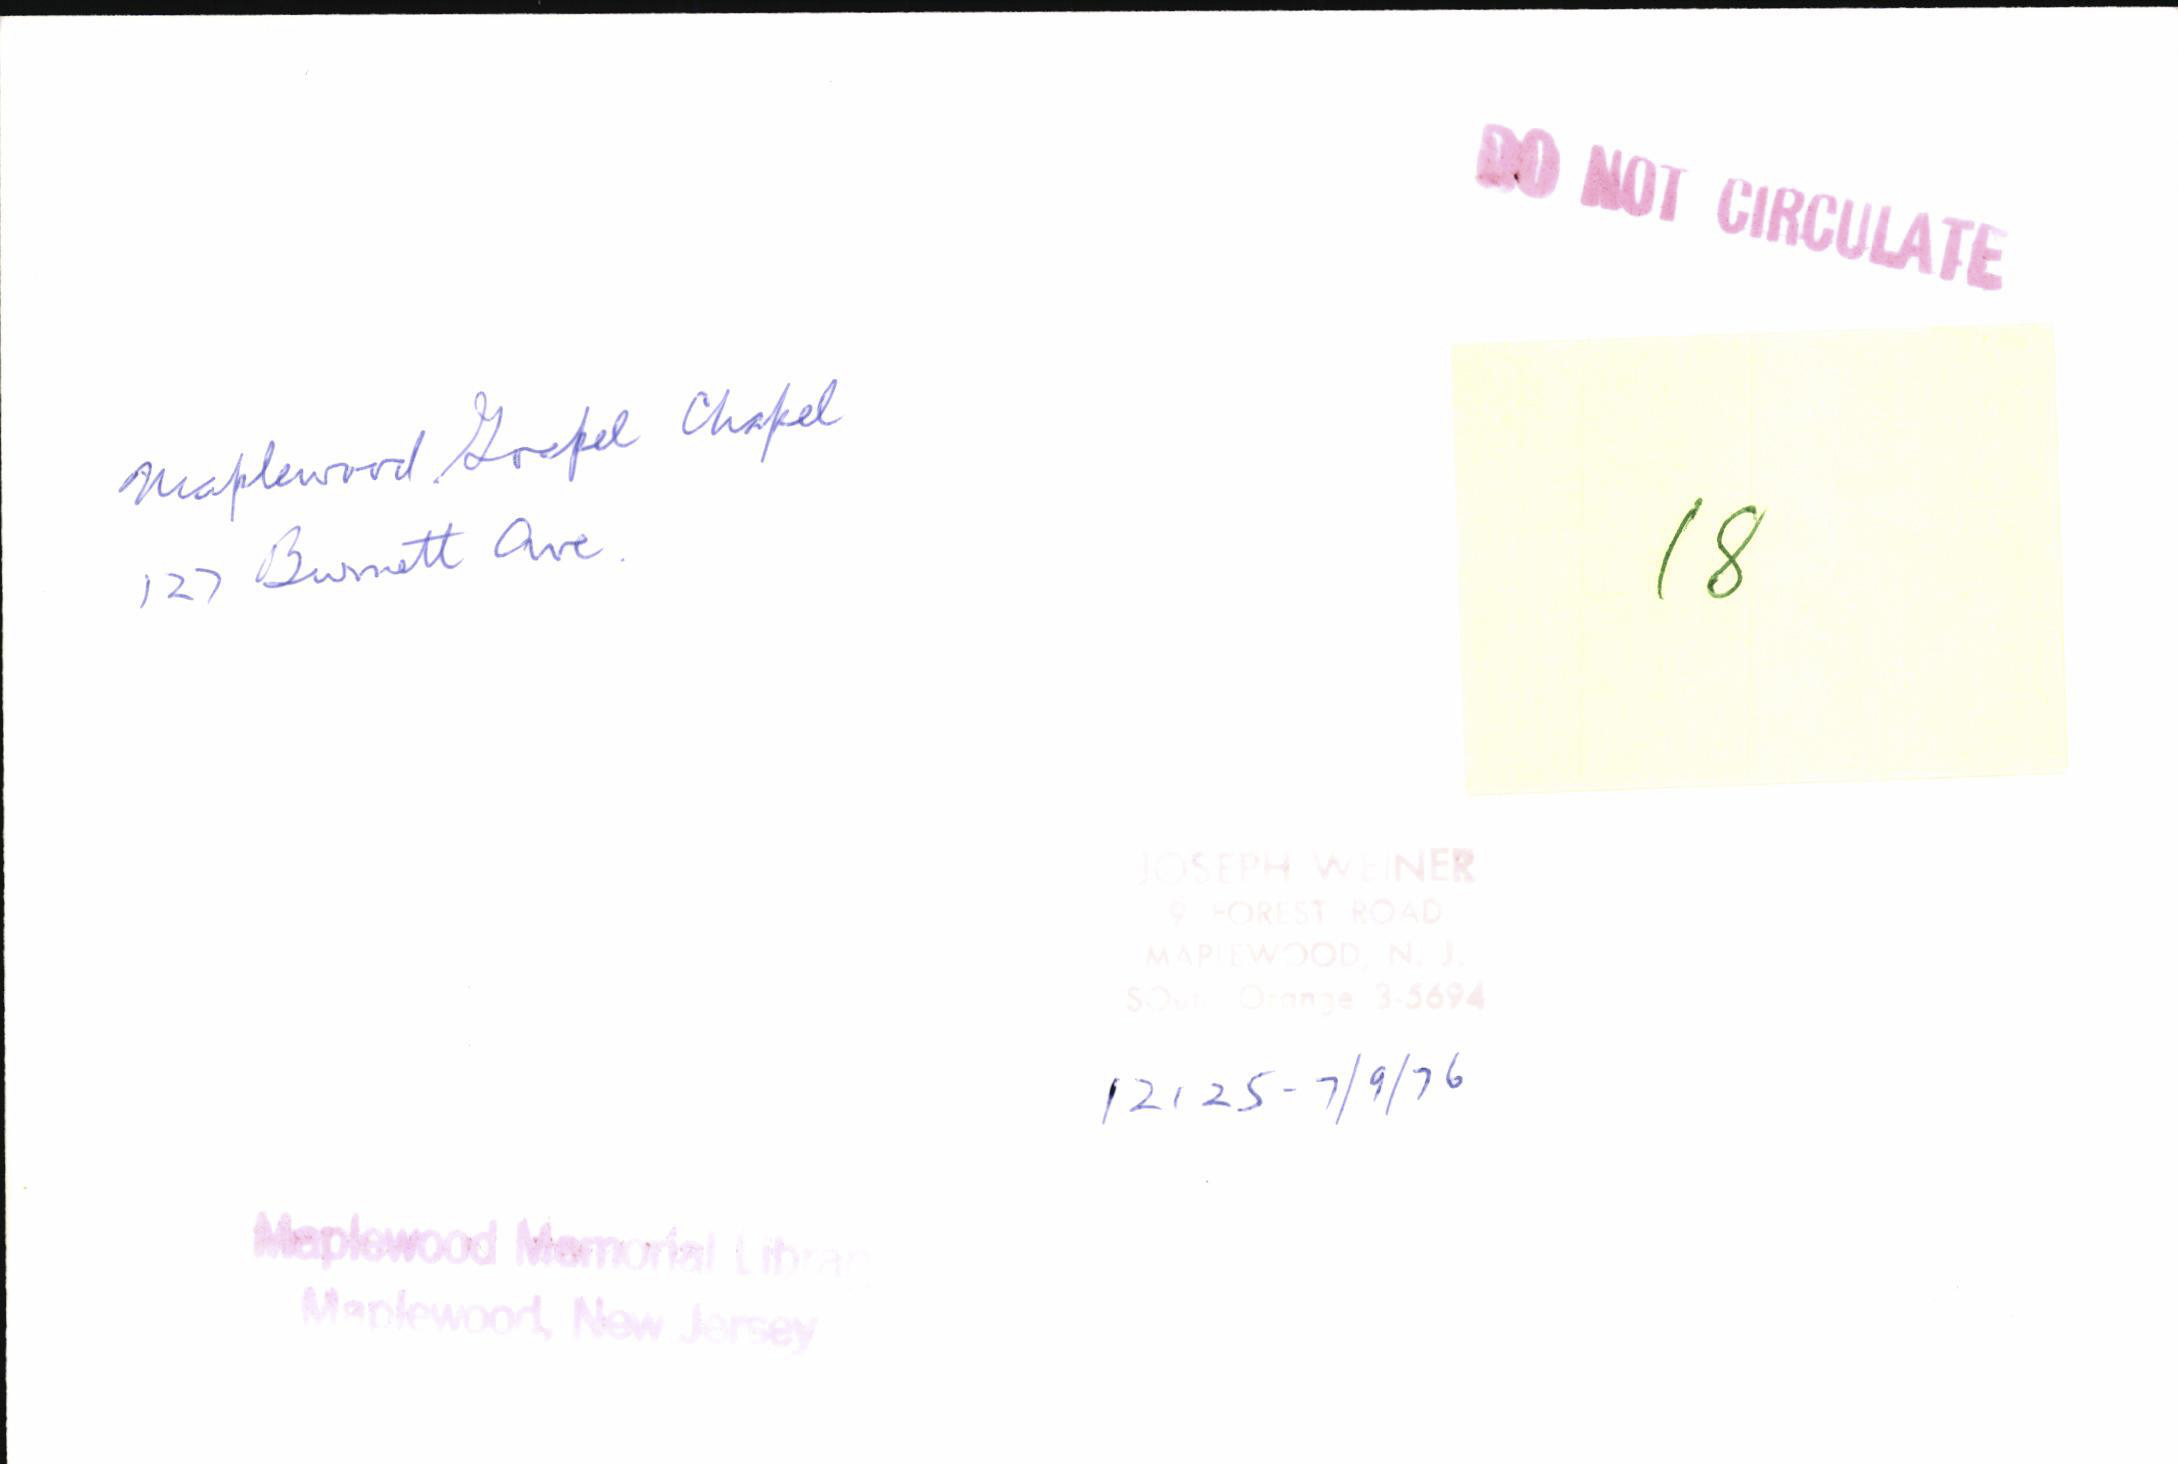 DO NOT CIRCULATE
Maplewood Gospel Chapel
127 Burnett Ave.
18
JOSEPH WEINER
9 FOREST ROAD
MAPLEWOOD, N. J.
SOuth Orange 3-5694
12125-7/9/76
Maplewood Memorial Library
Maplewood, New Jersey